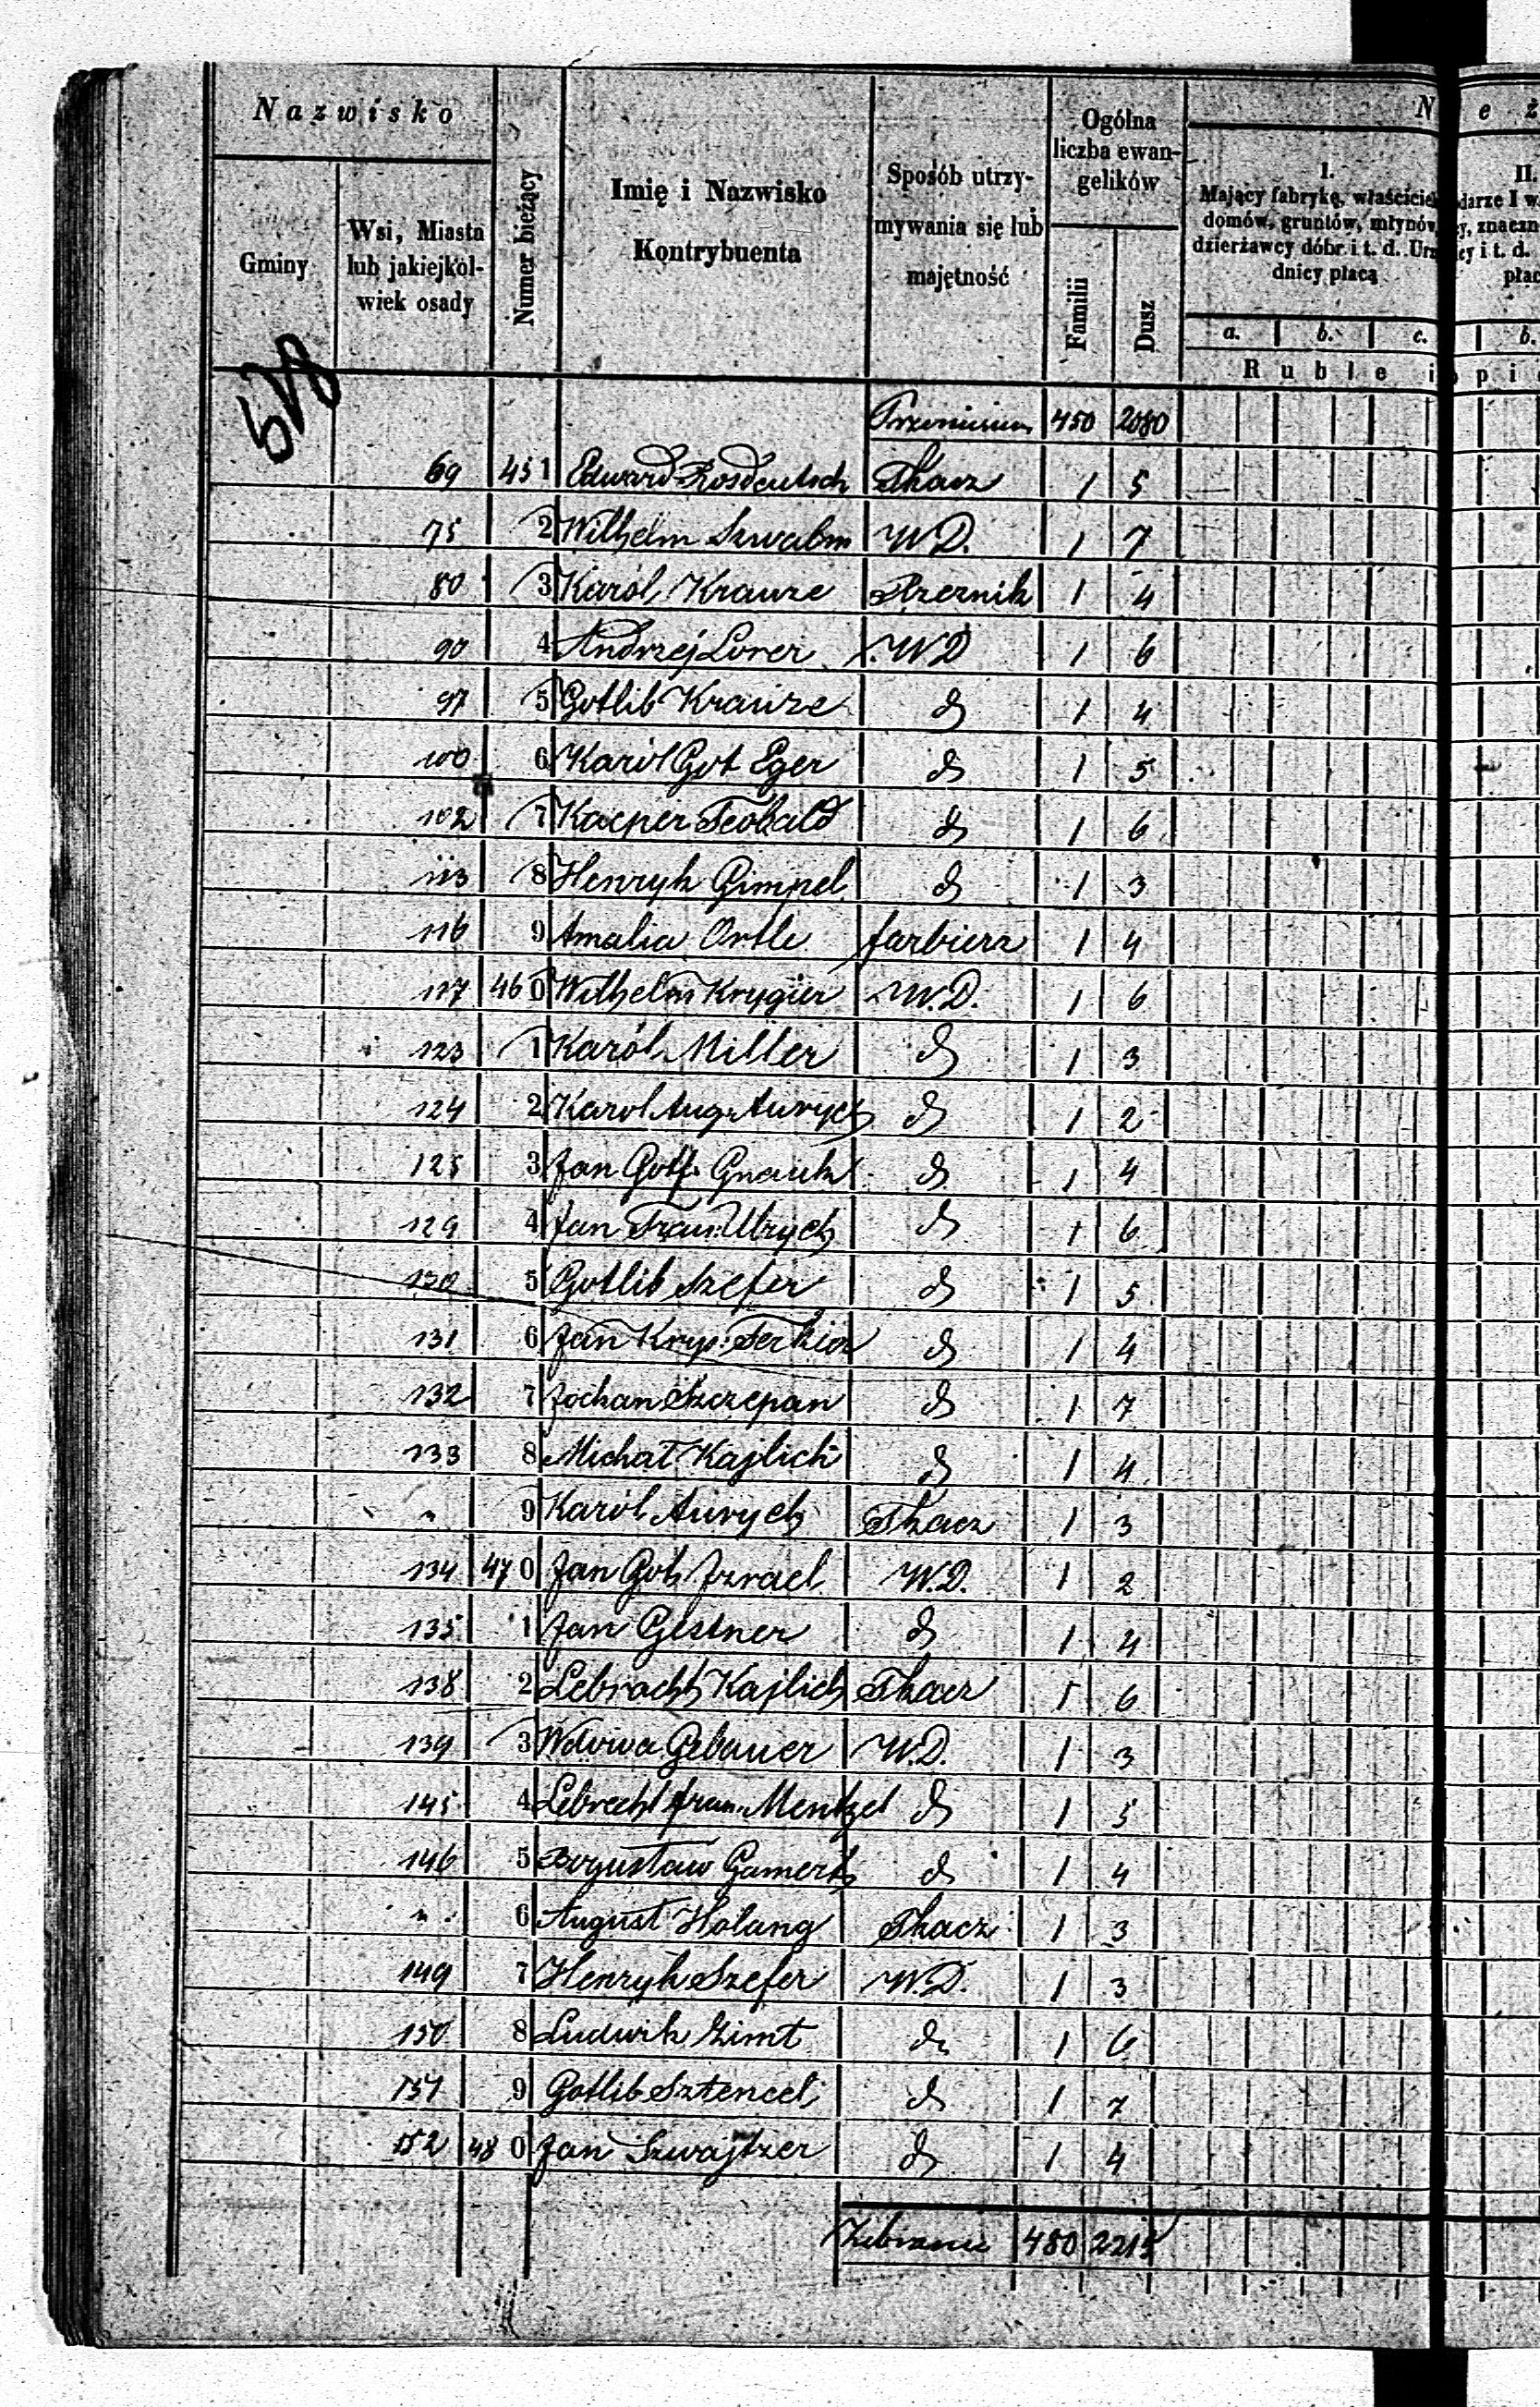 Nazwisko
Gminy
Wsi, Miasta lub jakiejkol- wiek osady
Numer bieżący
Imię i Nazwisko Kontrybuenta
Sposób utrzy- mywania się lub majętność
Ogólna liczba ewan- gelików
Familii
Dusz
N e z
I.
Mający fabrykę, właściciel
domów, gruntów, młynów,
dzierżawcy dóbr i t. d. Urz
dnicy płacą
II.
darze I w
y, znaczn
cy i t. d.
płac
a. b. c. b.
Ruble i opi
450 2080
69 451 Edward Rosdeutsch Tkacz 1 5
75 2 Wilhelm Szwalm W.D. 1 7
80 3 Karól Krauze Rzeznik 1 4
90 4 Andrzej Lorer W.D 1 6
97 5 Gotlib Krauze d 1 4
100 6 Karól Got Eger d 1 5
102 7 Kacper Teobald d 1 6
113 8 Henryk Gimpel d 1 3
116 9 Amalia Ortle farbierz 1 4
117 460 Wilhelm Krygier W.D. 1 6
123 1 Karól Miller d 1 3
124 2 Karol Aug. Aurych d 1 2
125 3 Jan Gotf. Gnauk d 1 4
129 4 Jan Fran. Ulrych d 1 6
130 5 Gotlib Szefer d 1 5
131 6 Jan Krys. d 1 4
132 7 Jochan Szczepan d 1 7
133 8 Michał Kajlich d 1 4
" 9 Karól Aurych Tkacz 1 3
134 470 Jan Got. Izrael W.D. 1 2
135 1 Jan Gestner d 1 4
138 2 Lebracht Kajlich Tkacz 1 6
139 3 Wdowa Gebauer W.D. 1 3
145 4 Lebrecht fran. Mentzel d 1 5
146 5 Augustaw Gamert d 1 4
" 6 August Holang Tkacz 1 3
149 7 Henryk Szefer W.D. 1 3
150 8 Ludwik Zimt d 1 6
151 9 Gotlib Sztencel d 1 7
152 480 Jan Szwajtzer d 1 4
480 2215